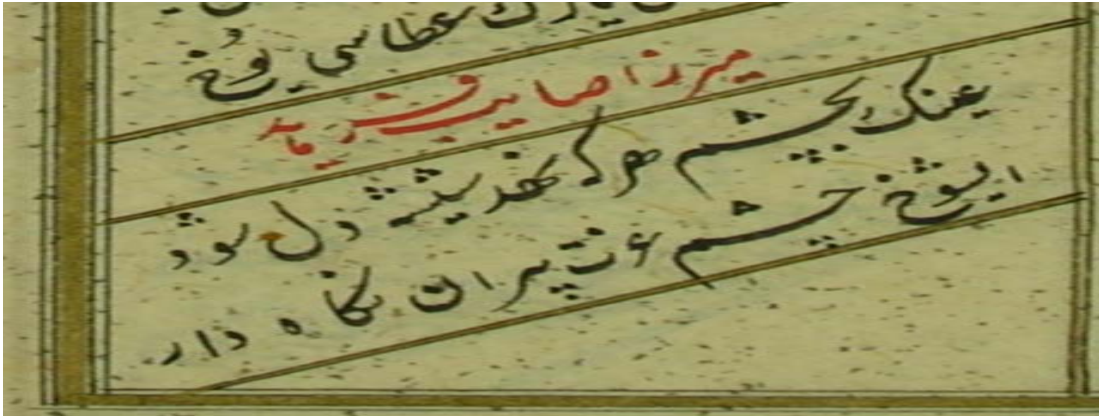 عطاسی یوخ
میرزا صایب فرماید
عینک بچشم هرکه نهد شیشه دل شود
ایشوخ چشم عزت پیران نگاه دار